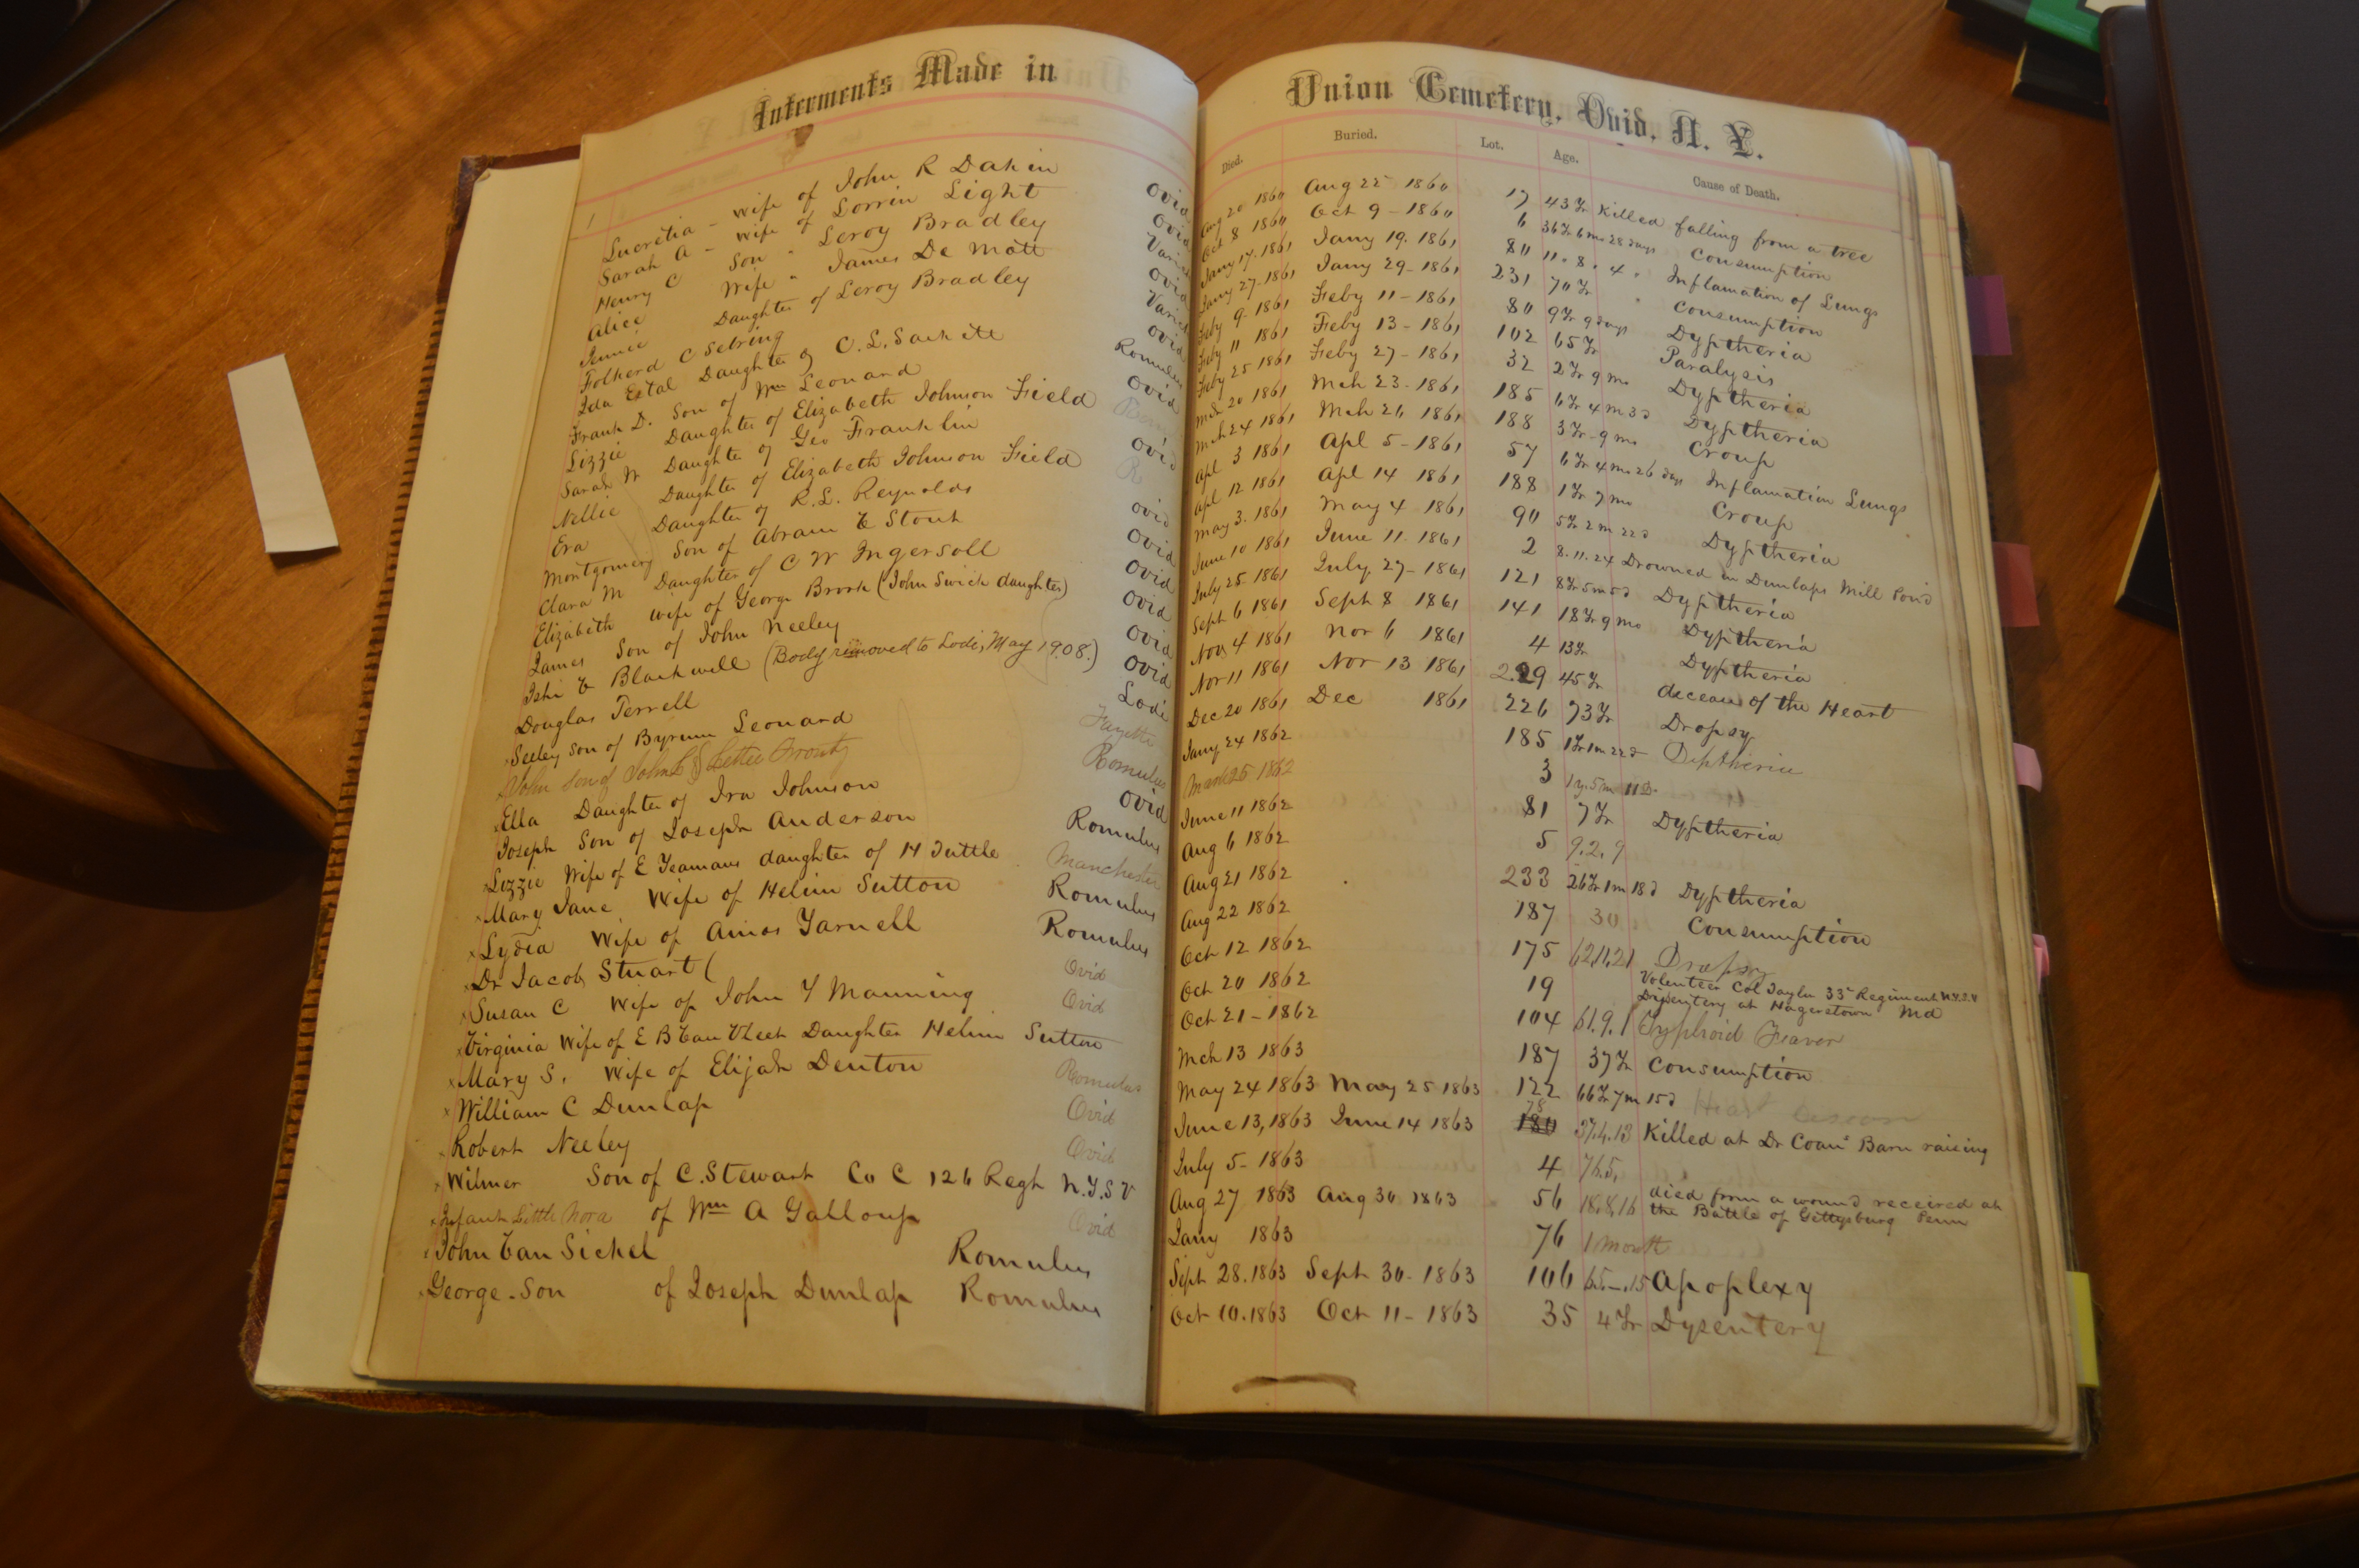 Interments Made in
1
Lucretia - wife of John R Dakin Ovid
Sarah A - wife of Lorrin Light Ovid
Henry C Son " Leroy Bradley Varick
Alice Wife " James De Mott Ovid
Jennie Daughter of Leroy Bradley Varick
Folkerd C Sebring Ovid
Ida Estal Daughter of C.L. Sackett Romulus
Frank D. Son of Wm Leonard Ovid
Lizzie Daughter of Elizabeth Johnson Field
Sarah W Daughter of Geo Franklin Ovid
Nellie Daughter of Elizabeth Johnson Field R
Eva Daughter of R.L. Reynolds Ovid
Montgomery Son of Abram V Stout Ovid
Clara M Daughter of C W Ingersoll Ovid
Elizabeth wife of George Brook (John Swick daughter) Ovid
James Son of John Neeley Ovid
V Blackwell (Body removed to Lodi, May 1908.) Ovid
Douglas Terrell Lodi
Seeley Son of Byrum Leonard Fayette
John son of John L & Lettie Prouty Romulus
Ella Daughter of Ira Johnson Ovid
Joseph Son of Joseph Anderson Romulus
Lizzie Wife of E Yeamans daughter of H Tuttle Manchester
Mary Jane Wife of Helim Sutton Romulus
Lydia Wife of Amos Yarnell Romulus
Dr Jacob Stuart ( Ovid
Susan C Wife of John Y Manning Ovid
Virginia Wife of E B Van Vleet Daughter Helim Sutton
Mary S. Wife of Elijah Denton Romulus
William C Dunlap Ovid
Robert Neeley Ovid
Wilmer Son of C. Stewart Co C 126 Regt N.Y.S V
Infant Little Nora of Wm A Galloup Ovid
John Van Sickel Romulus
George - Son of Joseph Dunlap Romulus
Union Cemetery, Ovid, N. Y.
Died. Buried. Lot. Age. Cause of Death.
Aug 20 1860 Aug 22 1860 17 43 Yr Killed falling from a tree
Oct 8 1860 Oct 9 - 1860 6 36 Yr 6 mo 28 days Consumption
Jany 17. 1861 Jany 19. 1861 80 11 . 8 . 4 " Inflamation of Lungs
Jany 27. 1861 Jany 29 - 1861 231 70 Yr " Consumption
Feby 9. 1861 Feby 11 - 1861 80 9 Yr 9 days Dyptheria
Feby 11 1861 Feby 13 - 1861 102 65 Yr Paralysis
Feby 25 1861 Feby 27 - 1861 32 2 Yr 9 mo Dyptheria
Mch 20 1861 Mch 23 - 1861 185 6 Yr 4 m 3 d Dyptheria
Mch 24 1861 Mch 26 1861 188 3 Yr - 9 mo Croup
Apl 3 1861 Apl 5 - 1861 57 6 Yr 4 mo 26 days Inflamation Lungs
Apl 12 1861 Apl 14 1861 188 1 Yr 7 mo Croup
May 3. 1861 May 4 1861 90 5 Yr 2 m 22 d Dyptheria
June 10 1861 June 11. 1861 2 8. 11. 24 Drowned in Dunlaps Mill Pond
July 25 1861 July 27 - 1861 121 8 Yr 5 m 5 d Dyptheria
Sept 6 1861 Sept 8 1861 141 18 Yr 9 mo Dyptheria
Nov 4 1861 Nov 6 1861 4 13 Yr Dyptheria
Nov 11 1861 Nov 13 1861 229 45 Yr decease of the Heart
Dec 20 1861 Dec 1861 226 73 Yr Dropsy
Jany 24 1862 185 1 Yr 1 m 22 d Diptheria
March 25 1862 3 1 y. 5 m 11 D.
June 11 1862 81 7 Yr Dyptheria
Aug 6 1862 5 9. 2. 9
Aug 21 1862 233 26 Yr 1 m 18 d Dyptheria
Aug 22 1862 187 30 Consumption
Oct 12 1862 175 62.11.21 Dropsy
Oct 20 1862 19 Volenteer Col Taylor 33d Regiment N.Y.S.V
Dysentery at Hagerstown Md
Oct 21 - 1862 104 61. 9. 1 Typhoid Feaver
Mch 13 1863 187 37 Yr Consumption
May 24 1863 May 25 1863 122 66 Yr 7 m 15 d Heart
78
June 13, 1863 June 14 1863 180 37.4.13 Killed at Dr Coan's Barn raising
July 5 - 1863 4 76.5.
Aug 27 1863 Aug 30. 1863 56 18.8.16 died from a wound received at
the Battle of Gettysburg Penn
Jany 1863 76 1 month
Sept 28. 1863 Sept 30 - 1863 106 65.-.15 Apoplexy
Oct 10. 1863 Oct 11 - 1863 35 4 Yr Dysentery